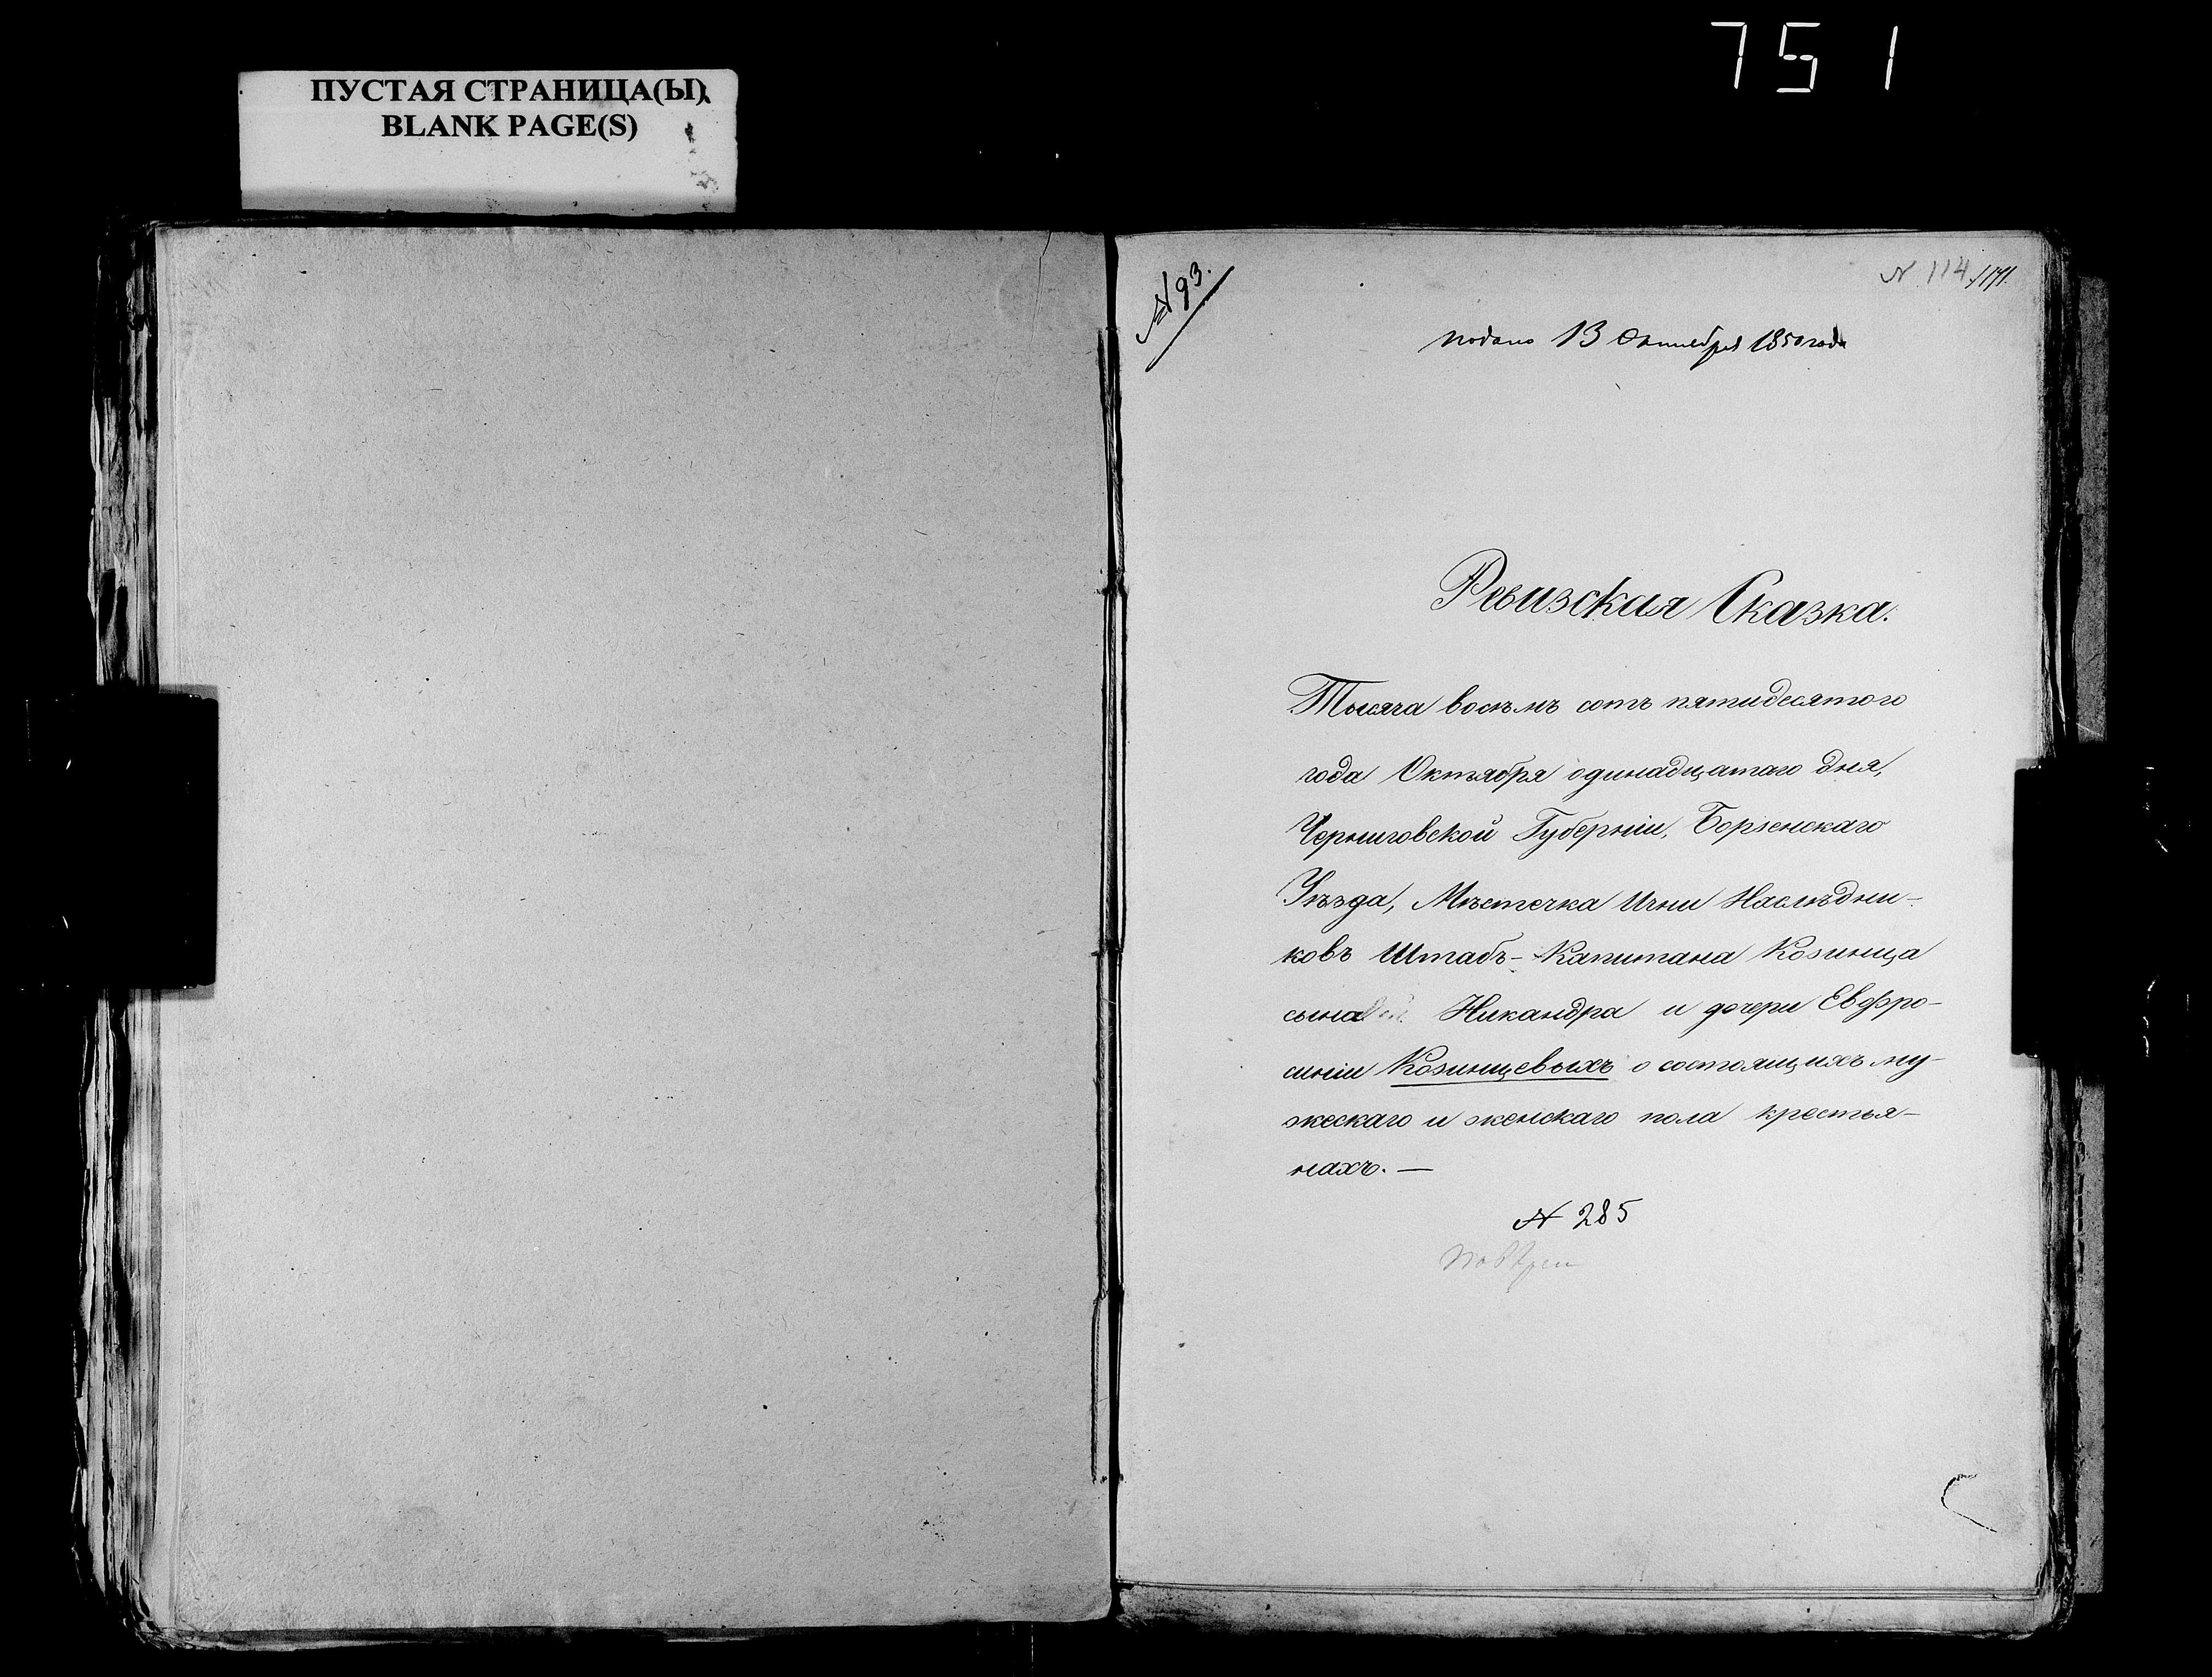 751
ПУСТАЯ СТРАНИЦА(Ы)
BLANK PAGE(S)
№ 93.
N 114
подано 13 Октября 1850 года
Ревизская Сказка.
Тысяча восемь сотъ пятидесятого
года Октября одинадцатаго дня,
Черниговской Губерніи, Борзенскаго
Уѣзда, Мѣстечка Ични Наслѣдни-
ковъ Штабъ-Капитана Козинца
сына Никандра и дочери Евфро-
синіи Козинцевыхъ о состоящихъ му-
жескаго и женскаго пола крестья-
нахъ. —
N 285